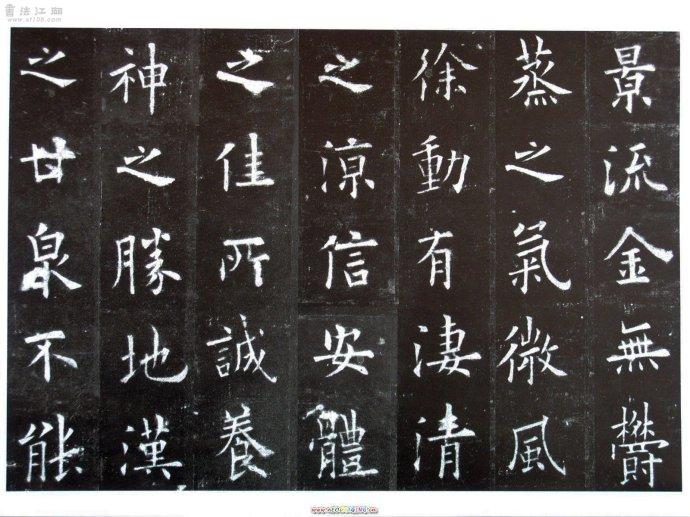 書法江湖
www.sf108.com
景流金無鬱
蒸之氣微風
徐動有淒清
之涼信安體
之佳所誠養
神之勝地漢
之甘泉不能